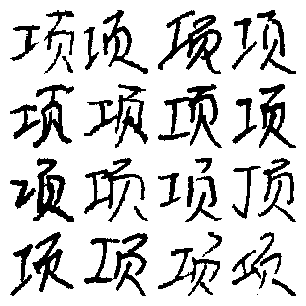 项项项项
项项项项
项项项顶
项项项项